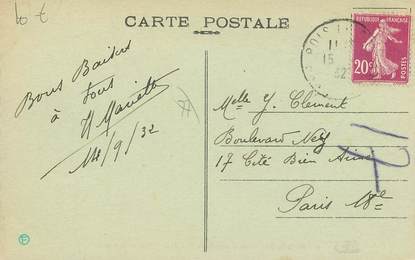 CARTE POSTALE
Bons Baisers
à tous
H Mariette
14/9/32
Melle Y. Clément
Boulevard Ney
17 Cité Bien Aimé
Paris 18e
RÉPUBLIQUE FRANÇAISE
20c
POSTES
11
15
32